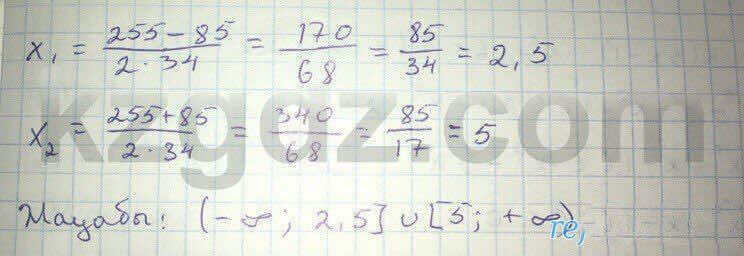 x₁ = (255 − 85)/(2 · 34) = 170/68 = 85/34 = 2,5
kzgdz.com
x₂ = (255 + 85)/(2 · 34) = 340/68 = 85/17 = 5
Жауабы: (−∞; 2,5] ∪ [5; +∞)
те,